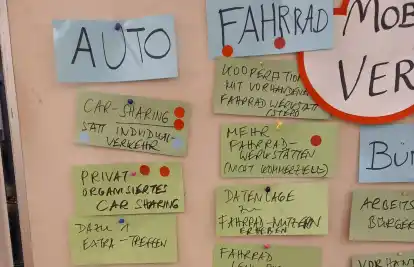 AUTO
CAR-SHARING
STATT INDIVIDUAL-
VERKEHR
PRIVAT
ORGANISIERTES
CAR SHARING
DAZU 1
EXTRA-TREFFEN
FAHRRAD
KOOPERATION
MIT VORHANDENEN
FAHRRADWERKSTATT
MEHR
FAHRRAD-
WERKSTÄTTEN
(NICHT KOMMERZIELL)
DATENLAGE
ZU
FAHRRAD-NUTZERN
ERHEBEN
FAHRRAD
MOB
VER
BÜ
ARBEITS
BÜRGER
VORHAN